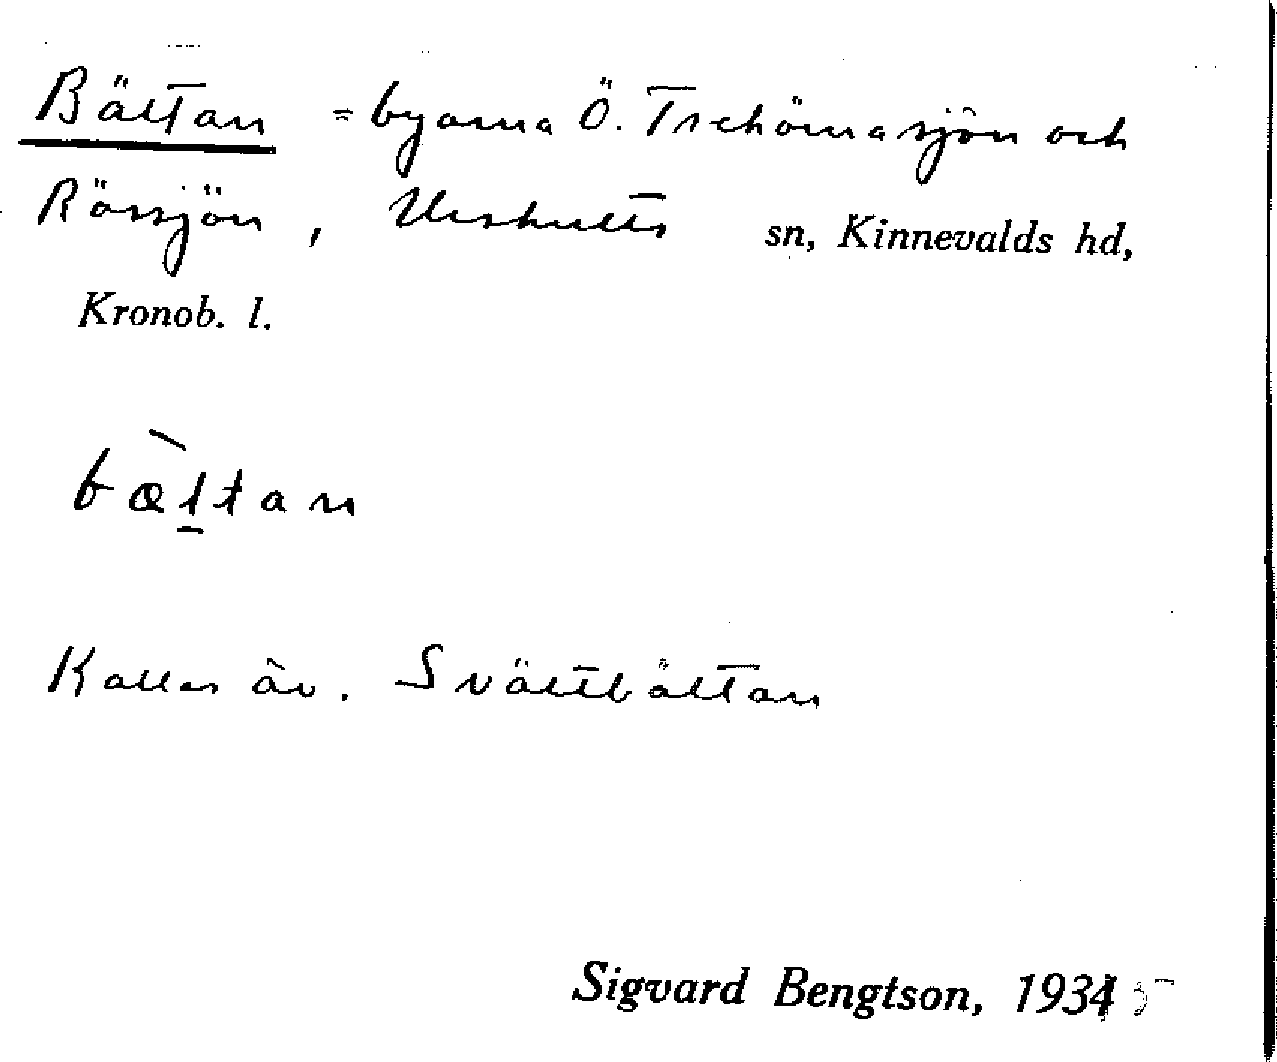 Bältan = byarna Ö. Tschörnasjön och
Rössjön, Urshults sn, Kinnevalds hd,
Kronob. l.
bæ̀l̠tan
Kallas äv. Svältbältan
Sigvard Bengtson, 1934 5